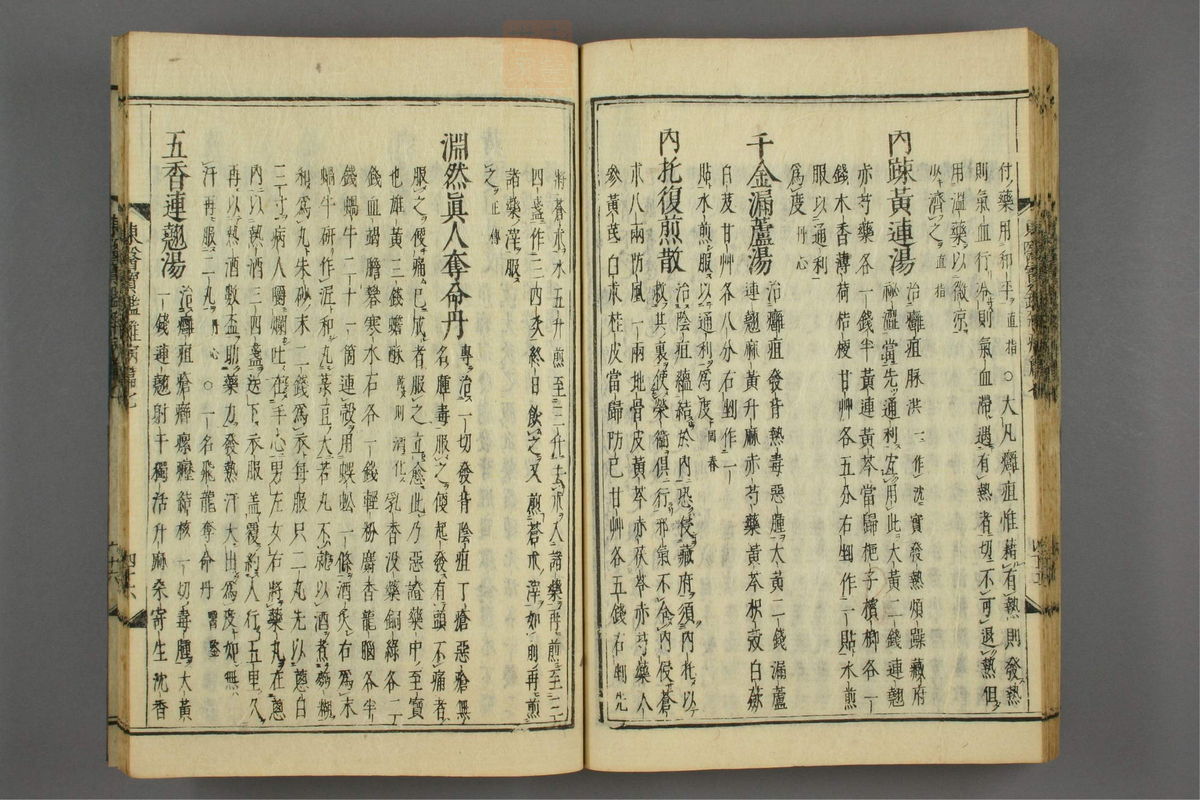 付藥用和平直指○大凡癰疽惟藉有熱則發熱
則氣血行冷則氣血滯遇有熱者切不可退熱但
用溫藥以微涼
以濟之直指
內疎黃連湯
治癰疽脉洪一作沈實發熱煩躁藏府
秘澁當先通利宜用此大黃二錢連翹
赤芍藥各一錢半黃連黃芩當歸梔子檳榔各一
錢木香薄荷桔梗甘艸各五分右剉作一貼水煎
服以通利
爲度丹心
千金漏蘆湯
治癰疽發背熱毒惡腫大黃二錢漏蘆
連翹麻黃升麻赤芍藥黃芩枳殼白蘞
白芨甘艸各八分右剉作一
貼水煎服以通利爲度回春
內托復煎散
治陰疽蘊結於內恐侵藏府須內托以
救其裏使榮衛俱行邪氣不令內侵蒼
朮八兩防風一兩地骨皮黃芩赤茯苓赤芍藥人
參黃芪白朮桂皮當歸防己甘艸各五錢右剉先
將蒼朮水五升煎至三升去朮入諸藥再煎至三
四盞作三四次終日飲之又煎蒼朮滓如前再煎
諸藥滓服
之正傳
淵然眞人奪命丹
專治一切發背陰疽丁瘡惡瘡無
名腫毒服之便起發有頭不痛者
服之便痛已成者服之立愈此乃惡證藥中至寶
也雄黃三錢蟾酥乳香沒藥銅綠各二
錢血竭膽礬寒水石各一錢輕粉麝香龍腦各半
錢蝸牛二十一箇連殼用蜈蚣一條酒灸右爲末
蝸牛研作泥和丸菉豆大若丸不就以酒煮麪糊
和爲丸朱砂末二錢爲衣每服只二丸先以蔥白
三寸病人嚼爛吐在手心男左女右將藥丸在蔥
內以熱酒三四盞送下衣服盖覆約人行五里久
再以熱酒數盃助藥力發熱汗大出爲度如無
汗再服二丸丹心○一名飛龍奪命丹醫鑒
五香連翹湯
治癰疽瘡癤瘰癧結核一切毒腫大黃
一錢連翹射干獨活升麻桑寄生沈香
東醫寶鑑雜病篇七
四十六